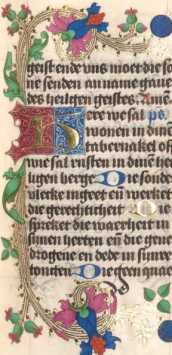 geist ende vns moet die so
ne senden au name gaue
des heiligen geistes
ere we sal
wonen in dinē
tabernakel off
wie sal rusten in dinē hei
ligen berge Die sonder
vlecke in geet en̄ werket
die gerechticheit
spreket die waerheit in
sinen herten en̄ die gene
drogene en dede in sijnre
tonten Die geen quae